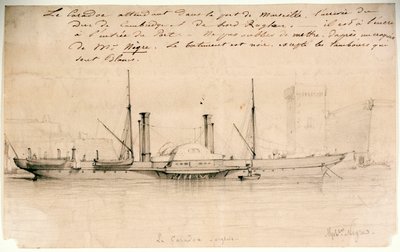 Le Caradoc attendant dans le port de Marseille, l'arrivée du
Duc de Cambridge & de Lord Raglan; il est à l'ancre
à l'entrée du Port. Ne pas oublier de mettre, d'après un croquis
de Mr. Nègre. Le bâtiment est noir, excepté les tambours qui
sont blancs.
Le Caradoc
Nègre